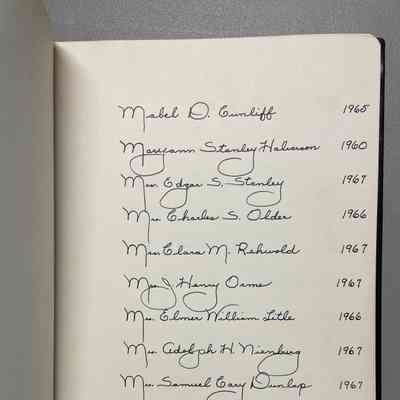 Mabel D. Cunliff 1965
Maryann Stanley Halvorson 1960
Mrs. Edgar S. Stanley 1967
Mrs. Charles S. Older 1966
Mrs. Clara M. Rehwold 1967
Mrs. J. Henry Orme 1967
Mrs. Elmer William Litle 1966
Mrs. Adolph H. Nienburg 1967
Mrs. Samuel Cary Dunlap 1967